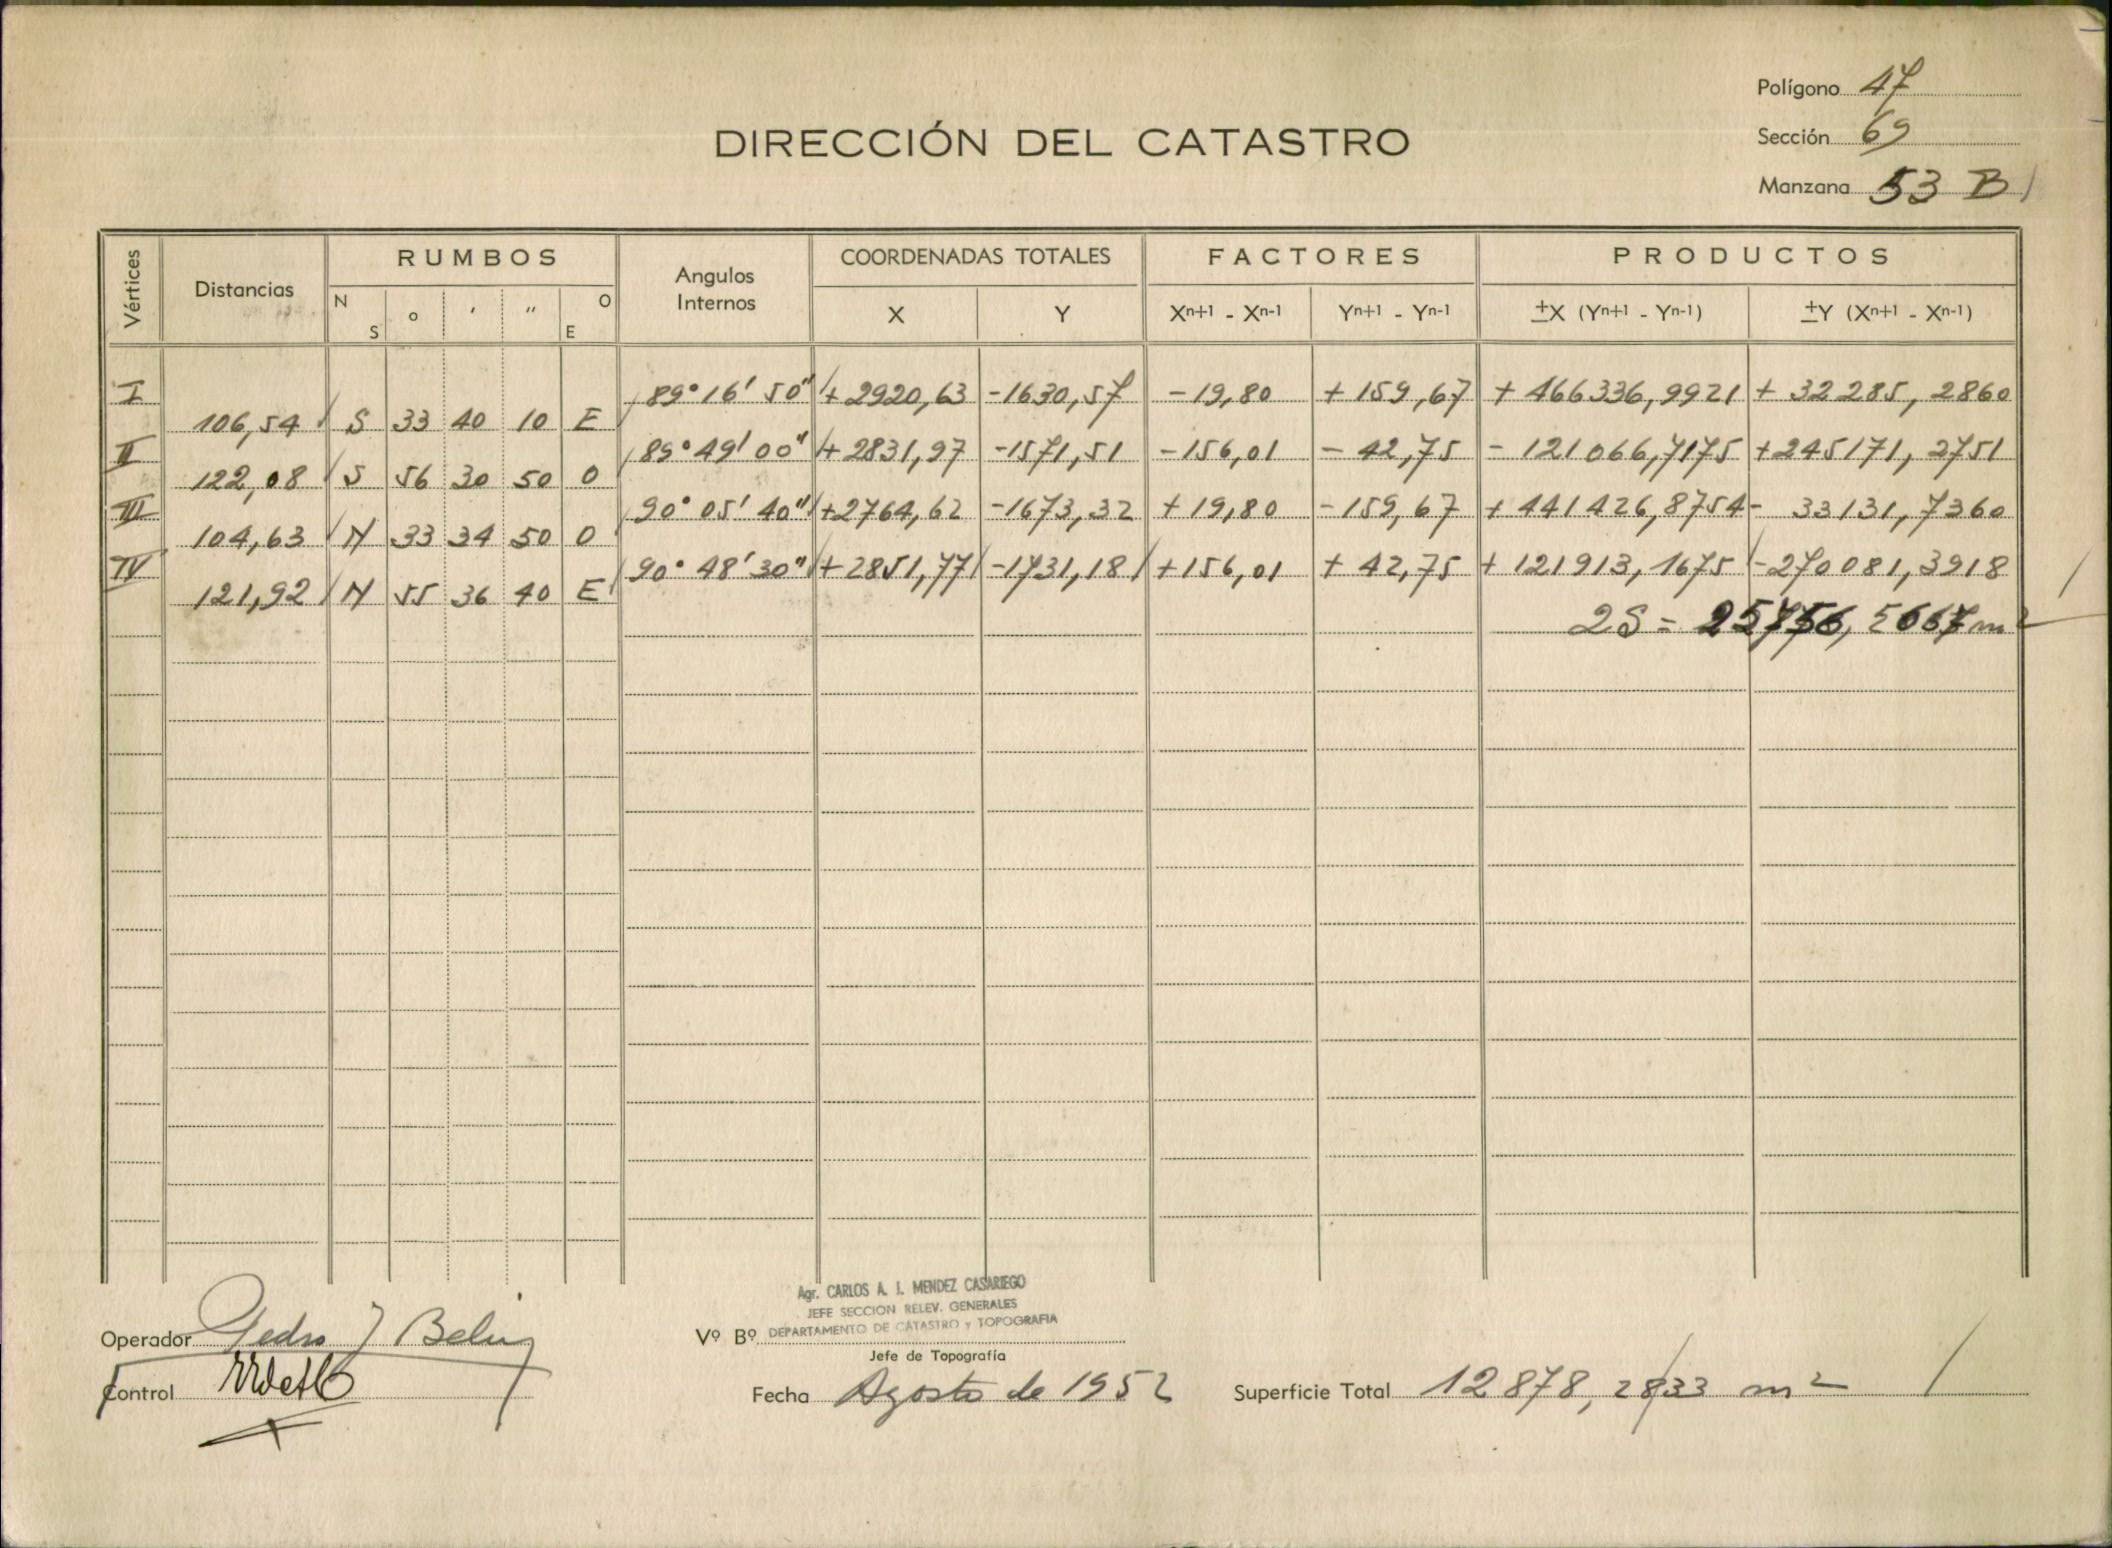 Polígono 47
Sección 69
Manzana 53 B
DIRECCIÓN DEL CATASTRO
Vértices Distancias RUMBOS Angulos Internos COORDENADAS TOTALES FACTORES PRODUCTOS
N S o ' " O E X Y Xn+1 - Xn-1 Yn+1 - Yn-1 ±X (Yn+1 - Yn-1) ±Y (Xn+1 - Xn-1)
I 89° 16' 50" + 2920,63 -1630,57 -19,80 + 159,67 + 466336,9921 + 32285,2860
106,54 S 33 40 10 E
II 89° 49' 00" + 2831,97 -1571,51 -156,01 - 42,75 - 121066,7175 +245171,2751
122,08 S 56 30 50 O
III 90° 05' 40" +2764,62 -1673,32 + 19,80 -159,67 + 441426,8754 - 33131,7360
104,63 N 33 34 50 O
IV 90° 48' 30" +2851,77 -1731,18 +156,01 + 42,75 + 121913,1675 -270081,3918
121,92 N 55 36 40 E
2S = 25756,5667 m2
Agr. CARLOS A. I. MENDEZ CASARIEGO
JEFE SECCION RELEV. GENERALES
DEPARTAMENTO DE CATASTRO y TOPOGRAFIA
Operador Pedro J Vº Bº
Jefe de Topografía
Control Fecha Agosto de 1952 Superficie Total 12878,2833 m2